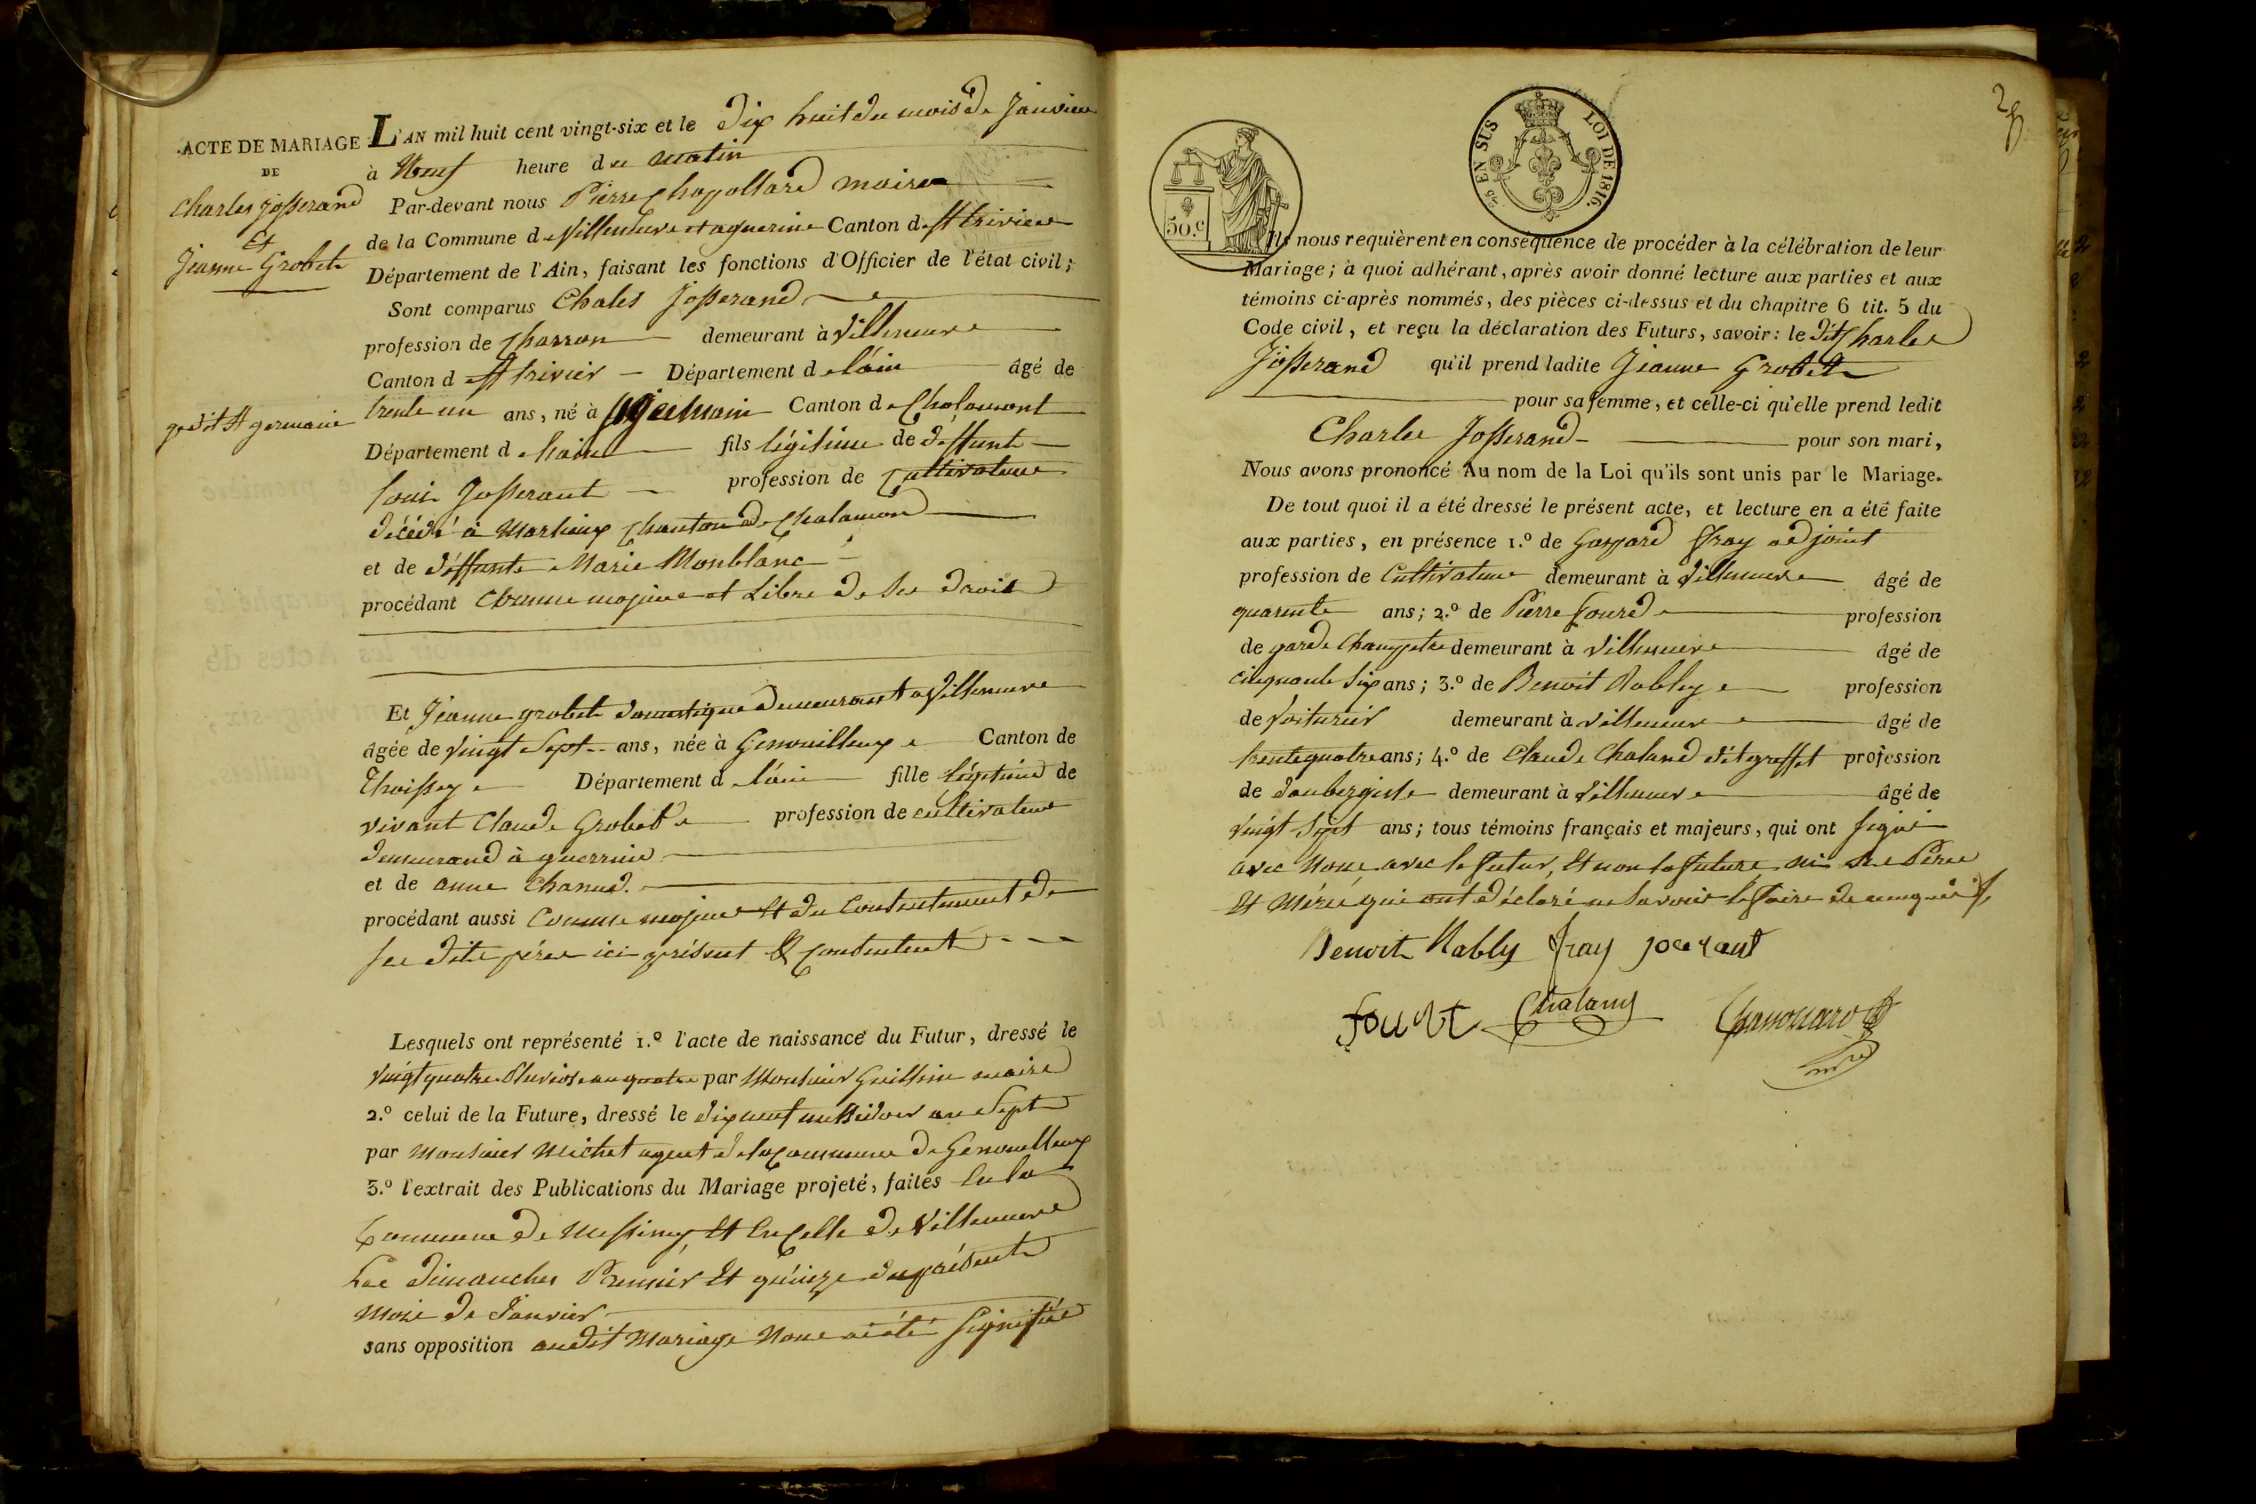 ACTE DE MARIAGE
DE
Charles Josserand
Et
Jeanne Grobet
go dit St germain
L'AN mil huit cent vingt-six et le Dix huit du mois de Janvier
à Neuf heure du matin
Par-devant nous Pierre Chapollard maire
de la Commune de Villeneuve et aguerine Canton de St trivier
Département de l'Ain, faisant les fonctions d'Officier de l'état civil;
Sont comparus Chales Josserand
profession de Charron demeurant à Villeneuve
Canton d St trivier Département de l'ain âgé de
trente un ans, né à St Germain Canton de Chalamont
Département de l'ain fils légitime de deffunt
Louis Josserant profession de Cultivateur
décédé à Marlieux Chanton de Chalamon
et de deffunte Marie Monblanc
procédant Comme majeur et Libre de Ses Droits
Et Jeanne grobet domestique demeurant à Villeneuve
âgée de vingt Sept ans, née à Genouilleux Canton de
Thoissey Département de l'ain fille légitime de
vivant Claude Grobet profession de cultivateur
demeurand à guerrine
et de anne Chanud.
procédant aussi Comme majeure Et du Consentement de
ses dits pére ici présent & Consentent
Lesquels ont représenté 1.º l'acte de naissance du Futur, dressé le
vingt quatre Pluviose an quatre par Monsieur Guillin maire
2.º celui de la Future, dressé le dix neuf messidor an Sept
par Monsieur Michet agent de la Commune de Genouilleux
3.º l'extrait des Publications du Mariage projeté, faites En la
Commune de Messimy Et En Celle de Villeneuve
Les dimanches Premier Et quinze du présent
mois de Janvier
sans opposition audit Mariage Nous ai été Signifiée
50.C
25 EN SUS
LOI DE 1816.
Ils nous requièrent en conséquence de procéder à la célébration de leur
Mariage; à quoi adhérant, après avoir donné lecture aux parties et aux
témoins ci-après nommés, des pièces ci-dessus et du chapitre 6 tit. 5 du
Code civil, et reçu la déclaration des Futurs, savoir: le dit Charles
Josserand qu'il prend ladite Jeanne Grobet
pour sa femme, et celle-ci qu'elle prend ledit
Charles Josserand pour son mari,
Nous avons prononcé Au nom de la Loi qu'ils sont unis par le Mariage.
De tout quoi il a été dressé le présent acte, et lecture en a été faite
aux parties, en présence 1.º de Gaspard Fray adjoint
profession de Cultivateur demeurant à Villeneuve âgé de
quarante ans; 2.º de Pierre Foured profession
de garde Champetre demeurant à Villeneuve âgé de
cinquante six ans; 3.º de Benoit Nably profession
de Voiturier demeurant à Villeneuve âgé de
trente quatre ans; 4.º de Claude Chaland dit greffet profession
de d'aubergiste demeurant à Villeneuve âgé de
vingt Sept ans; tous témoins français et majeurs, qui ont Signé
avec Nous avec le futur, Et non la future ni Ses Pére
Et Mére qui ont déclaré ne Savoir le faire de ce requis
Benoit Nably Fray joserant
Chalany